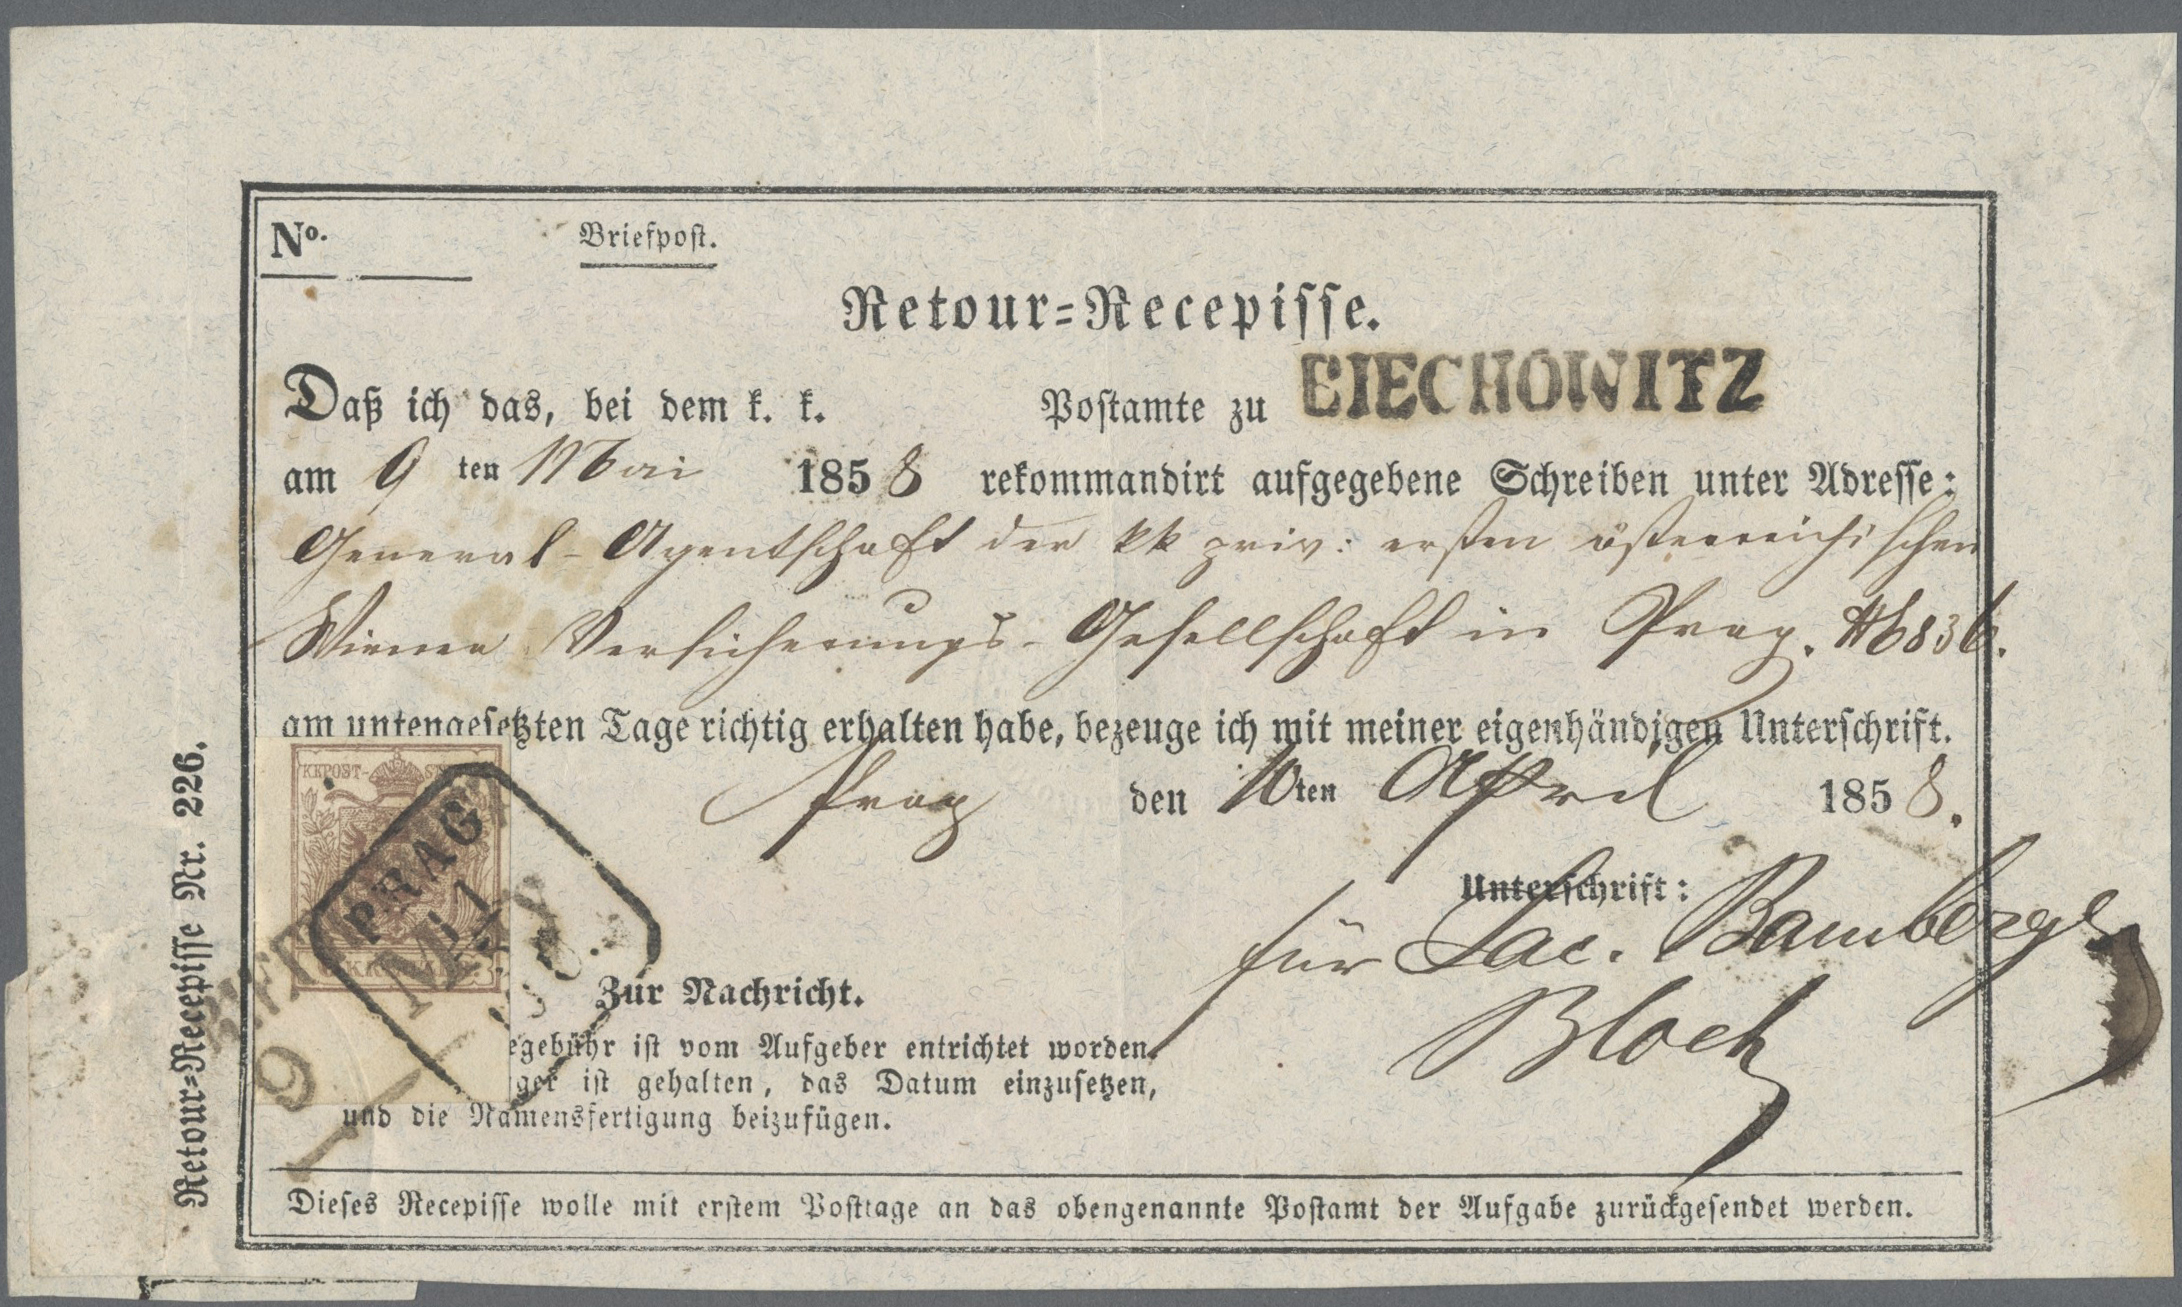 No. Briefpost.
Retour-Recepisse.
Daß ich das, bei dem k. k. Postamte zu BIECHOWITZ
am 9 ten Mai 1858 rekommandirt aufgegebene Schreiben unter Adresse:
General-Agentschaft der kk priv: ersten österreichischen
Wiener Versicherungs-Gesellschaft in Prag.
am untengesetzten Tage richtig erhalten habe, bezeuge ich mit meiner eigenhändigen Unterschrift.
Prag den 10ten April 1858.
Unterschrift:
für Jac. Bamberger
Bloch
KKPOST-
PRAG
Zur Nachricht.
egebühr ist vom Aufgeber entrichtet worden.
ger ist gehalten, das Datum einzusetzen,
und die Namensfertigung beizufügen.
Dieses Recepisse wolle mit erstem Posttage an das obengenannte Postamt der Aufgabe zurückgesendet werden.
Retour-Recepisse Nr. 226.